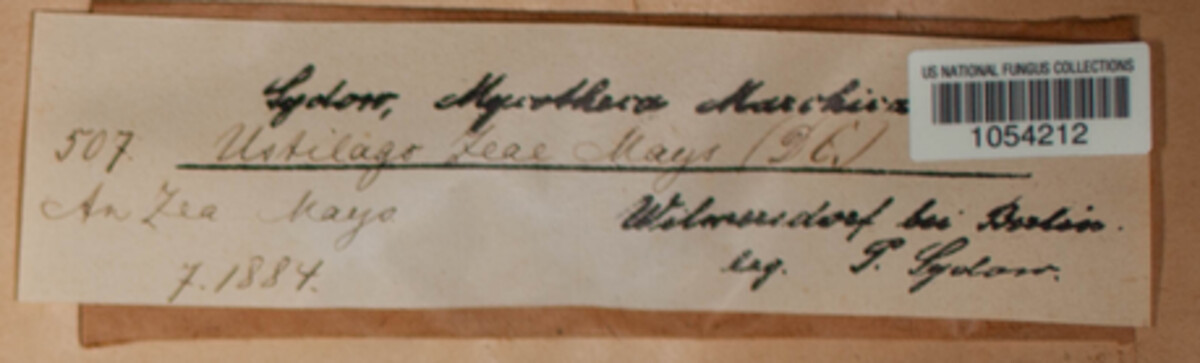 Sydow, Mycotheca Marchica
US NATIONAL FUNGUS COLLECTIONS
1054212
507. Ustilago Zeae Mays (DC.)
An Zea Mays
Wilmersdorf bei Berlin.
7.1884.
leg. P. Sydow.